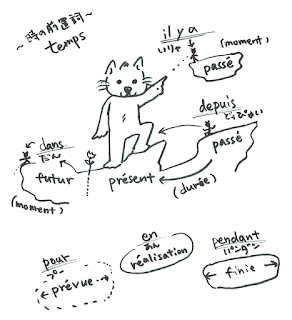 ～時の前置詞～
temps
il y a
イリヤ
(moment)
passé
depuis
passé
dans
ダン
futur
(moment)
présent
(durée)
pour
プー
prévue
en
アン
réalisation
pendant
パンダン
finie